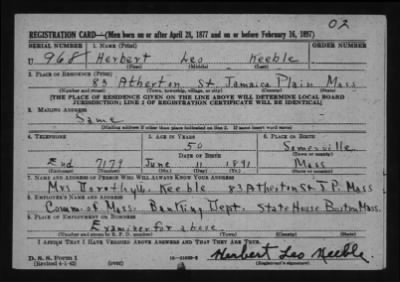 02
REGISTRATION CARD—(Men born on or after April 28, 1877 and on or before February 16, 1897)
SERIAL NUMBER 1. NAME (Print) ORDER NUMBER
U 968 Herbert Leo Keeble
(First) (Middle) (Last)
2. PLACE OF RESIDENCE (Print)
83 Atherton St Jamaica Plain Mass
(Number and street) (Town, township, village, or city) (County) (State)
[THE PLACE OF RESIDENCE GIVEN ON THE LINE ABOVE WILL DETERMINE LOCAL BOARD
JURISDICTION; LINE 2 OF REGISTRATION CERTIFICATE WILL BE IDENTICAL]
3. MAILING ADDRESS
Same
[Mailing address if other than place indicated on line 2. If same insert word same]
4. TELEPHONE 5. AGE IN YEARS 6. PLACE OF BIRTH
50 Somerville
DATE OF BIRTH (Town or county)
7179 June 11 1891 Mass
(Exchange) (Number) (Mo.) (Day) (Yr.) (State or country)
7. NAME AND ADDRESS OF PERSON WHO WILL ALWAYS KNOW YOUR ADDRESS
Mrs Dorothy W. Keeble 83 Atherton St J P. Mass
8. EMPLOYER'S NAME AND ADDRESS
Comm. of Mass. Banking Dept. State House Boston Mass.
9. PLACE OF EMPLOYMENT OR BUSINESS
Examiner for above
(Number and street or R. F. D. number) (Town) (County) (State)
I AFFIRM THAT I HAVE VERIFIED ABOVE ANSWERS AND THAT THEY ARE TRUE.
D. S. S. Form 1
(Revised 4-1-42) (over)
Herbert Leo Keeble
(Registrant's signature)